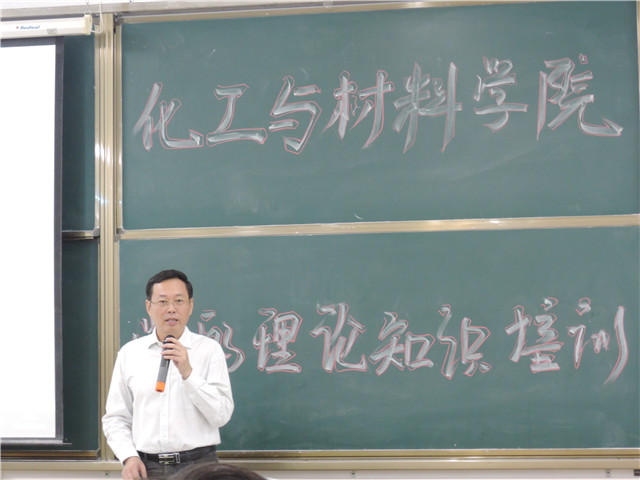 Redleaf
化工与材料学院
理论知识培训